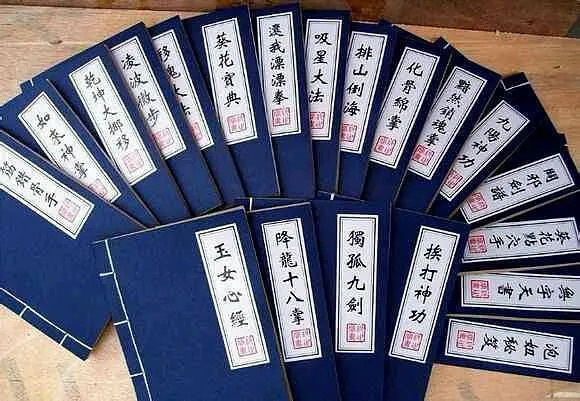 筋錯骨手
如來神掌
乾坤大挪移
凌波微步
移魂大法
葵花寶典
還我漂漂拳
吸星大法
排山倒海
化骨綿掌
黯然銷魂掌
九陽神功
闢邪劍譜
葵花點穴手
無字天書
泡妞秘笈
玉女心經
降龍十八掌
獨孤九劍
挨打神功